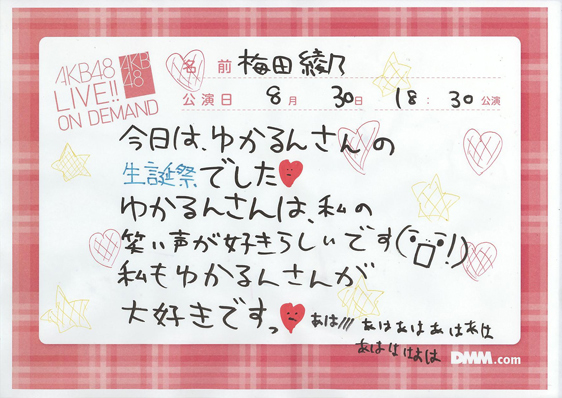 AKB48
LIVE!!
ON DEMAND
AKB
48
名前 梅田綾乃
公演日 8月 30日 18:30公演
今日は、ゆかるんさんの
生誕祭でした
ゆかるんさんは、私の
笑い声が好きらしいです(¯□¯!)
私もゆかるんさんが
大好きですっ
あは!!! あはあはあはあは
あははははは
DMM.com